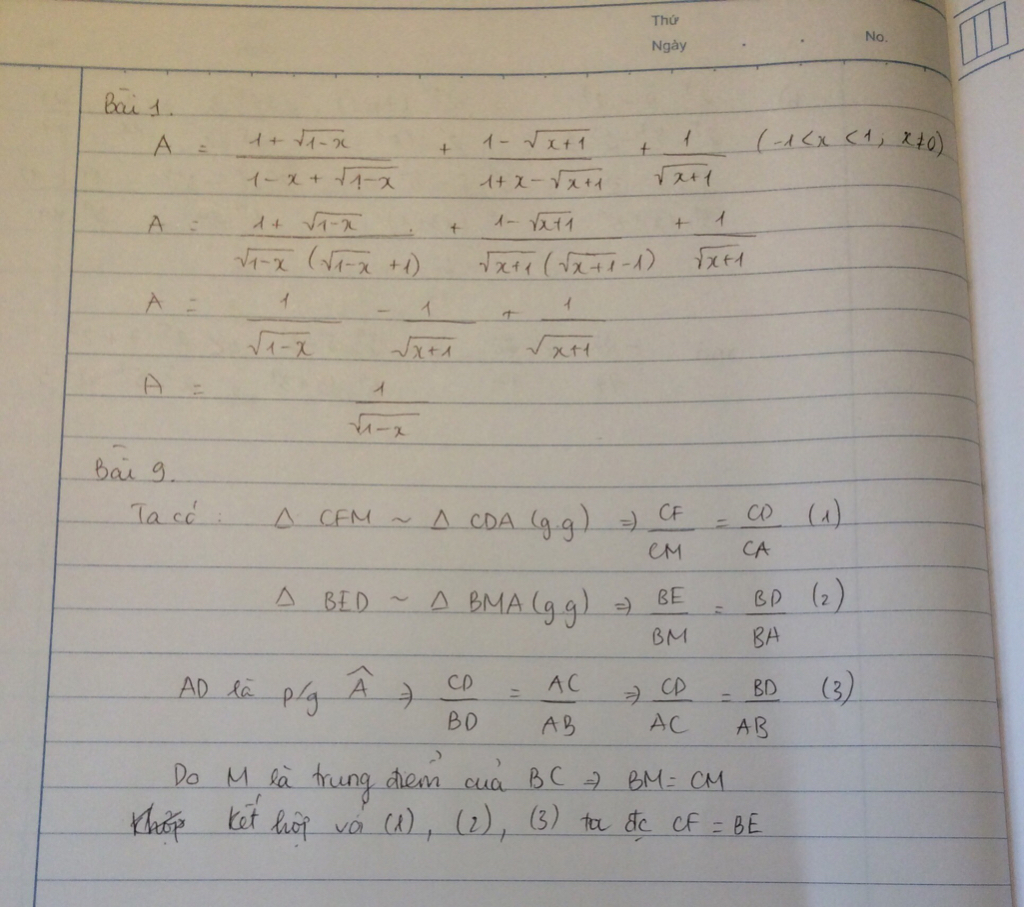 Thứ
Ngày . . No.
Bài 1.
A = \frac{1+\sqrt{1-x}}{1-x+\sqrt{1-x}} + \frac{1-\sqrt{x+1}}{1+x-\sqrt{x+1}} + \frac{1}{\sqrt{x+1}} (-1<x<1, x≠0)
A = \frac{1+\sqrt{1-x}}{\sqrt{1-x}(\sqrt{1-x}+1)} + \frac{1-\sqrt{x+1}}{\sqrt{x+1}(\sqrt{x+1}-1)} + \frac{1}{\sqrt{x+1}}
A = \frac{1}{\sqrt{1-x}} - \frac{1}{\sqrt{x+1}} + \frac{1}{\sqrt{x+1}}
A = \frac{1}{\sqrt{1-x}}
Bài 9.
Ta có: Δ CFM ~ Δ CDA (g.g) ⇒ \frac{CF}{CM} = \frac{CD}{CA} (1)
Δ BED ~ Δ BMA (g.g) ⇒ \frac{BE}{BM} = \frac{BD}{BA} (2)
AD là p/g \widehat{A} ⇒ \frac{CD}{BD} = \frac{AC}{AB} ⇒ \frac{CD}{AC} = \frac{BD}{AB} (3)
Do M là trung điểm của BC ⇒ BM = CM
Kết hợp với (1), (2), (3) ta đc CF = BE